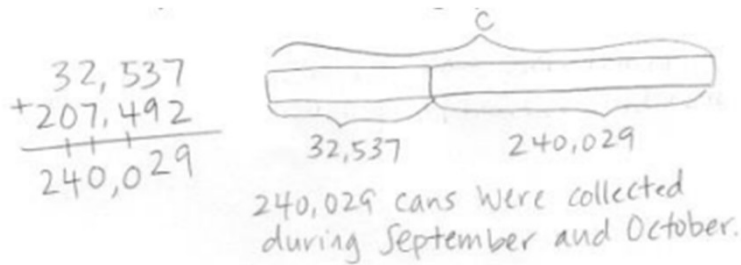 32,537
+207,492
240,029
C
32,537 240,029
240,029 cans were collected
during September and October.